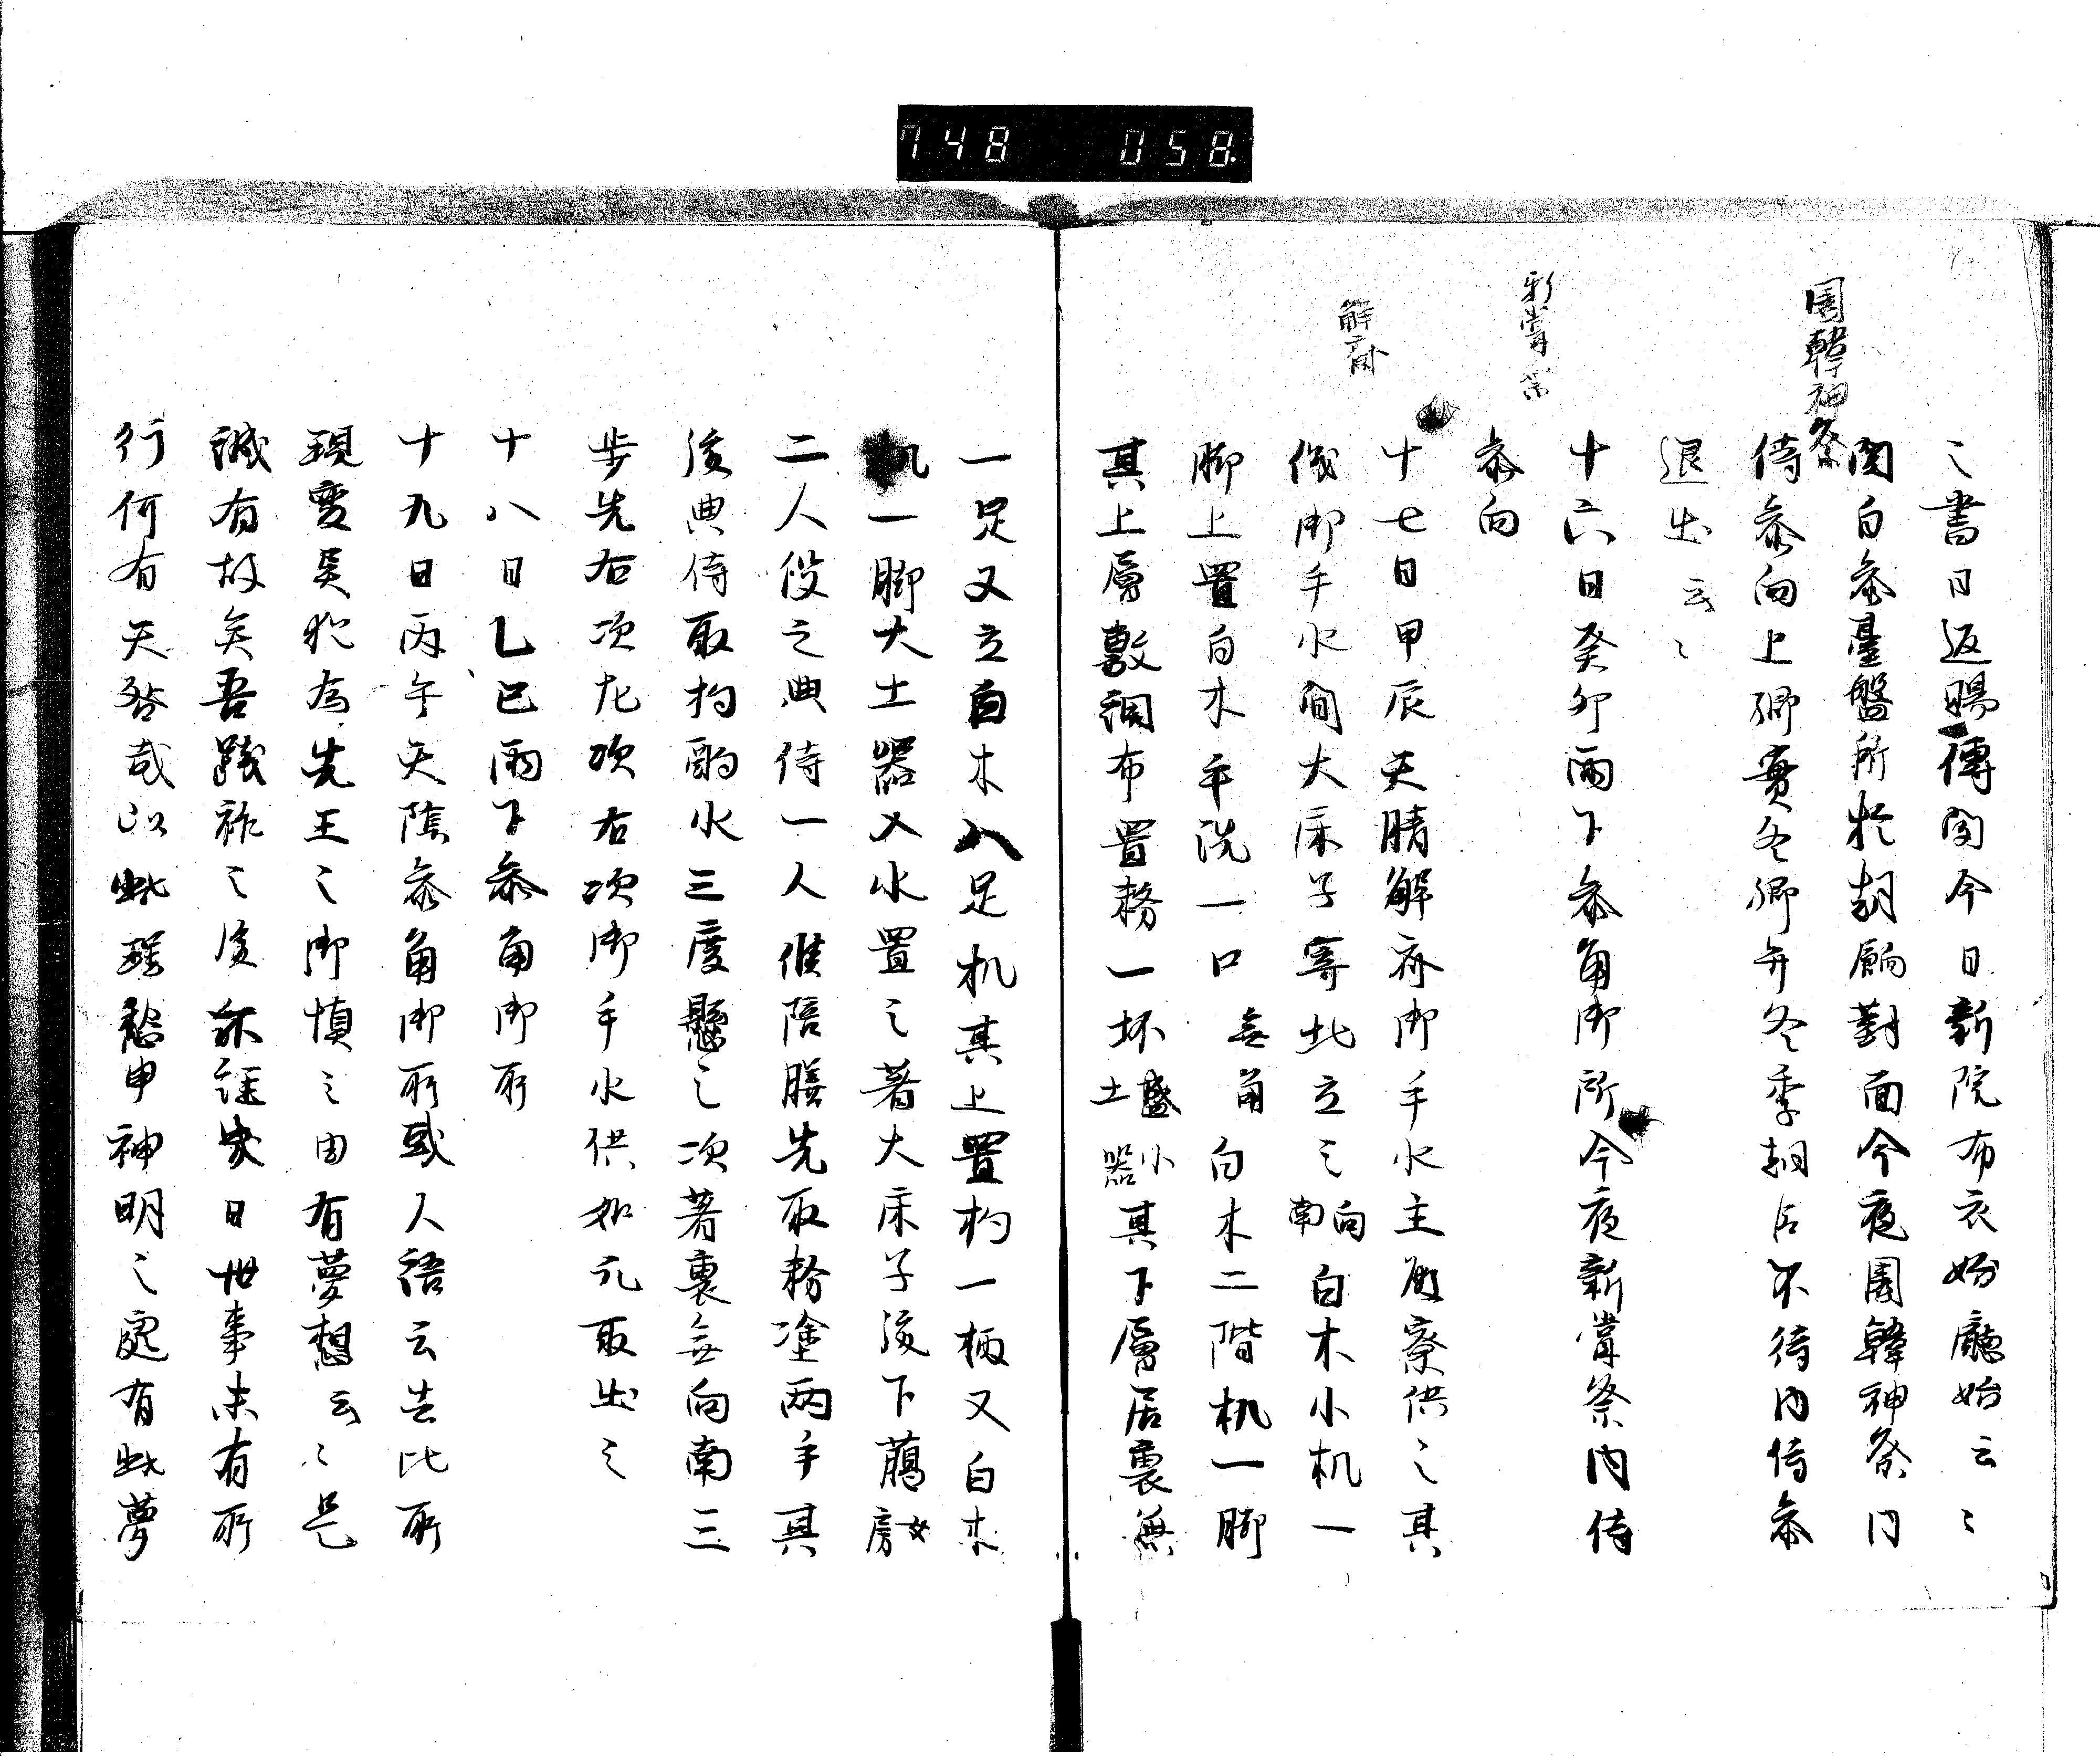 748 058
園韓神祭
新嘗祭
解斎
之書日返賜傳聞今日新院布衣始廳始云〻
関白参臺盤所於朝餉對面今夜園韓神祭内
侍参向上卿實冬卿弁冬季朝臣不待内侍参
退出云〻
十六日癸卯雨下参角御所今夜新嘗祭内侍
参向
十七日甲辰天晴解斎御手水主殿寮供之其
儀御手水間大床子寄北立之向南白木小机一
脚上置白木手洗一口無角白木二階机一脚
其上層敷調布置粉一坏盛小土器其下層居裏無
一足又立白木八足机其上置杓一柄又白木
机一脚大土器入水置之著大床子後下﨟女房
二人役之典侍一人候陪膳先取粉塗両手其
後典侍取杓酌水三度懸之次著裏無向南三
歩先右次左次右次御手水供如元取出之
十八日乙巳雨下参角御所
十九日丙午天陰参角御所或人語云去比所
現変異殊為先王之御慎之由有夢想云〻是
誠有故矣吾践祚之後亦経歳日世事未有所
行何有天咎哉以此理愁申神明之處有此夢